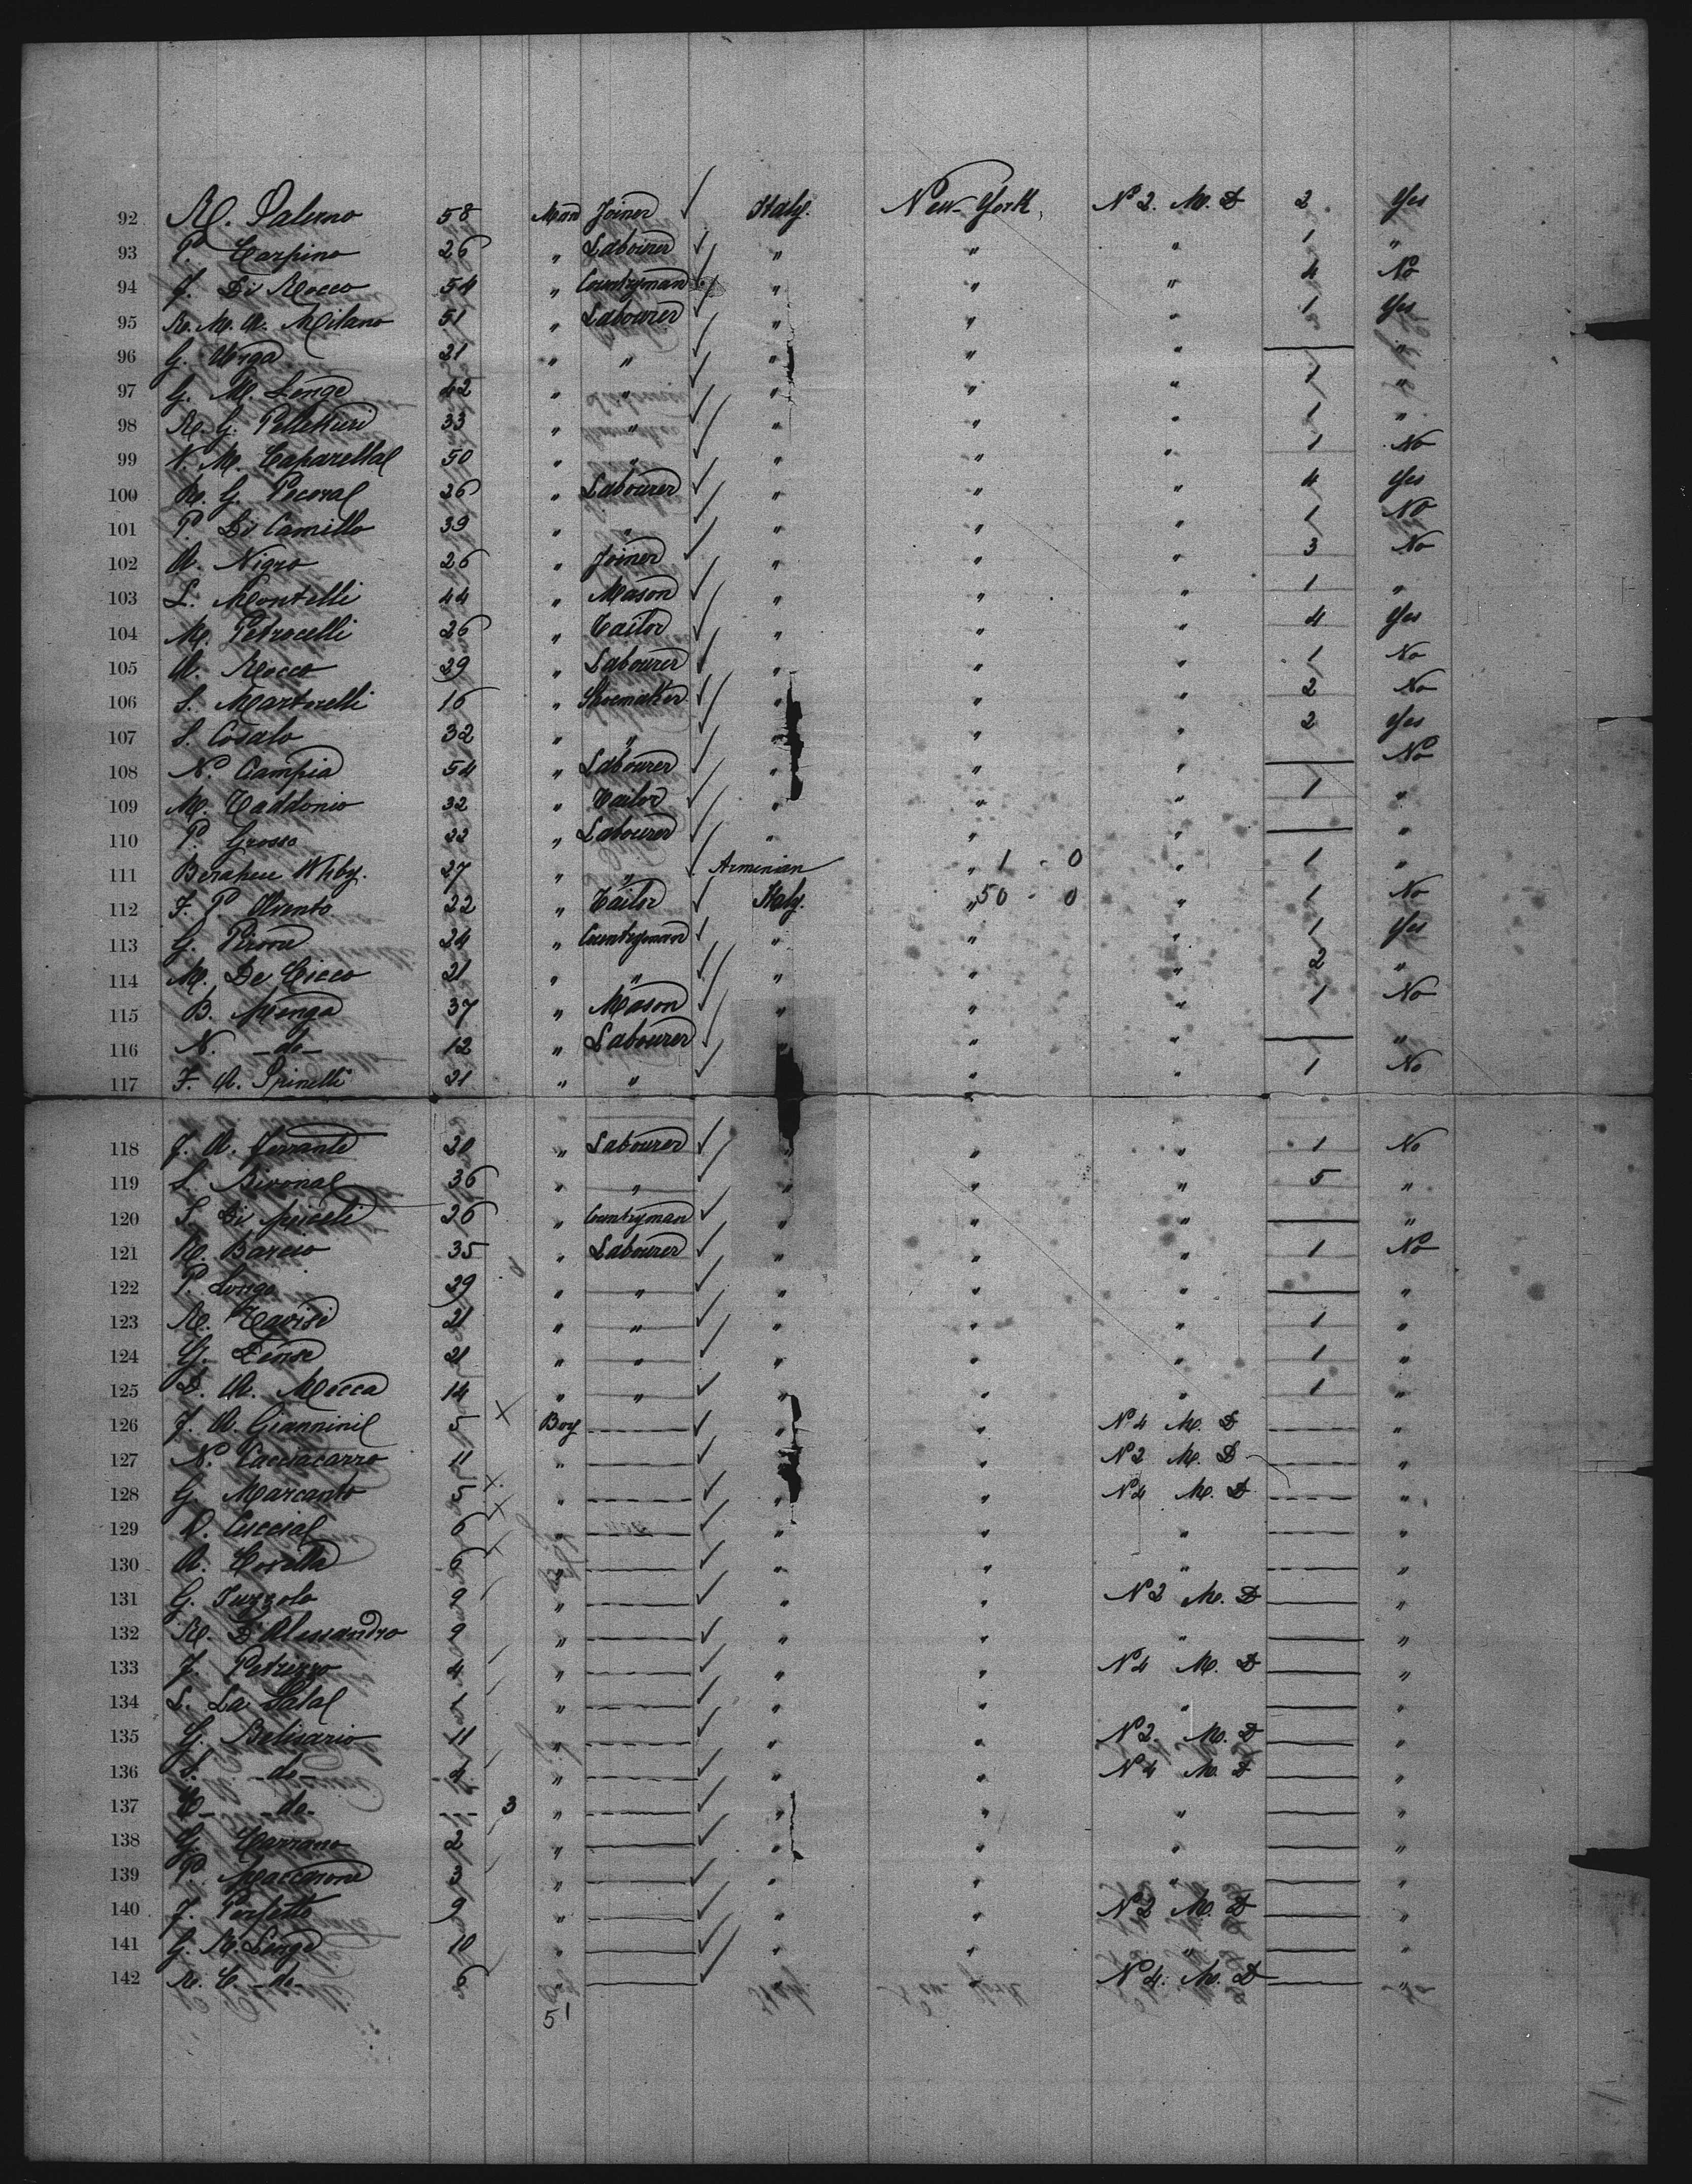 92 R. Palermo 58 Man Joiner ✓ Italy. New-York, Nº 2. M. D 2 Yes
93 P. Carpino 26 " Labourer ✓ " " " 1 "
94 J. Di Rocco 54 " Countryman ✓ " " " 4 No
95 R. M. A. Milano 51 " Labourer ✓ " " " 1 Yes
96 G. Verga 21 " " ✓ " " " — "
97 G. M. Longo 42 " " ✓ " " " 1 "
98 R. G. 33 " " ✓ " " " 1 "
99 V. M. Caparella 50 " " ✓ " " " 1 No
100 R. G. Pecora 26 " Labourer ✓ " " " 4 Yes
101 P. Di Camillo 39 " " ✓ " " " 1 No
102 A. Nigro 26 " Joiner ✓ " " " 3 No
103 L. Montelli 44 " Mason ✓ " " " 1 "
104 M. Petrocelli 26 " Tailor ✓ " " " 4 Yes
105 A. Rocco 29 " Labourer ✓ " " " 1 No
106 S. Martorelli 16 " Shoemaker ✓ " " " 2 No
107 S. Cosalo 32 " " ✓ " " " 2 Yes
108 N. Campia 54 " Labourer ✓ " " " — No
109 M. Taddonio 32 " Tailor ✓ " " " 1 "
110 P. Grosso 22 " Labourer ✓ " " " — "
111 27 " " ✓ Armenian " 1 - 0 " 1 "
112 F. P. 22 " Tailor ✓ Italy. " 50 - 0 " 1 No
113 G. Pirone 24 " Countryman ✓ " " " 1 Yes
114 M. De Cicco 21 " " ✓ " " " 2 "
115 B. Menga 37 " Mason ✓ " " " 1 No
116 N. -do- 12 " Labourer ✓ " " " — "
117 F. A. Spinelli 21 " " ✓ " " " 1 No
118 J. A. Ferrante 20 " Labourer ✓ " " " 1 No
119 S. Bivona 36 " " ✓ " " " 5 "
120 S. Di Miceli 26 " Countryman ✓ " " " — "
121 R. Barcio 35 " Labourer ✓ " " " 1 No
122 P. Longo 29 " " ✓ " " " — "
123 R. Tavisi 21 " " ✓ " " " 1 "
124 G. 21 " " ✓ " " " 1 "
125 D. A. Mocca 14 " " ✓ " " " 1 "
126 J. A. Giannini 5 × Boy — ✓ " " Nº 4 M. D — "
127 N. Cacciacarro 11 " — ✓ " " Nº 2 M. D — "
128 G. Marcanto 5 × " — ✓ " " Nº 4 M. D — "
129 Cuccia 6 × " — ✓ " " " — "
130 A. 6 " — ✓ " " " — "
131 G. Iuzzolo 9 " — ✓ " " Nº 2 M. D — "
132 R. D'Alessandro 9 " — ✓ " " " — "
133 J. Petrizzo 4 " — ✓ " " Nº 4 M. D — "
134 L. La Sala 1 " — ✓ " " " — "
135 G. Belisario 11 " — ✓ " " Nº 2 M. D — "
136 S. -do- 4 " — ✓ " " Nº 4 M. D — "
137 C. -do- --- 3 " — ✓ " " " — "
138 G. Carrano 2 " — ✓ " " " — "
139 P. Maccarone 3 " — ✓ " " " — "
140 J. Perfetto 9 " — ✓ " " Nº 2 M. D — "
141 G. M. Longo 10 " — ✓ " " " — "
142 R. C. -do- 6 " — ✓ " " Nº 4. M. D — "
51